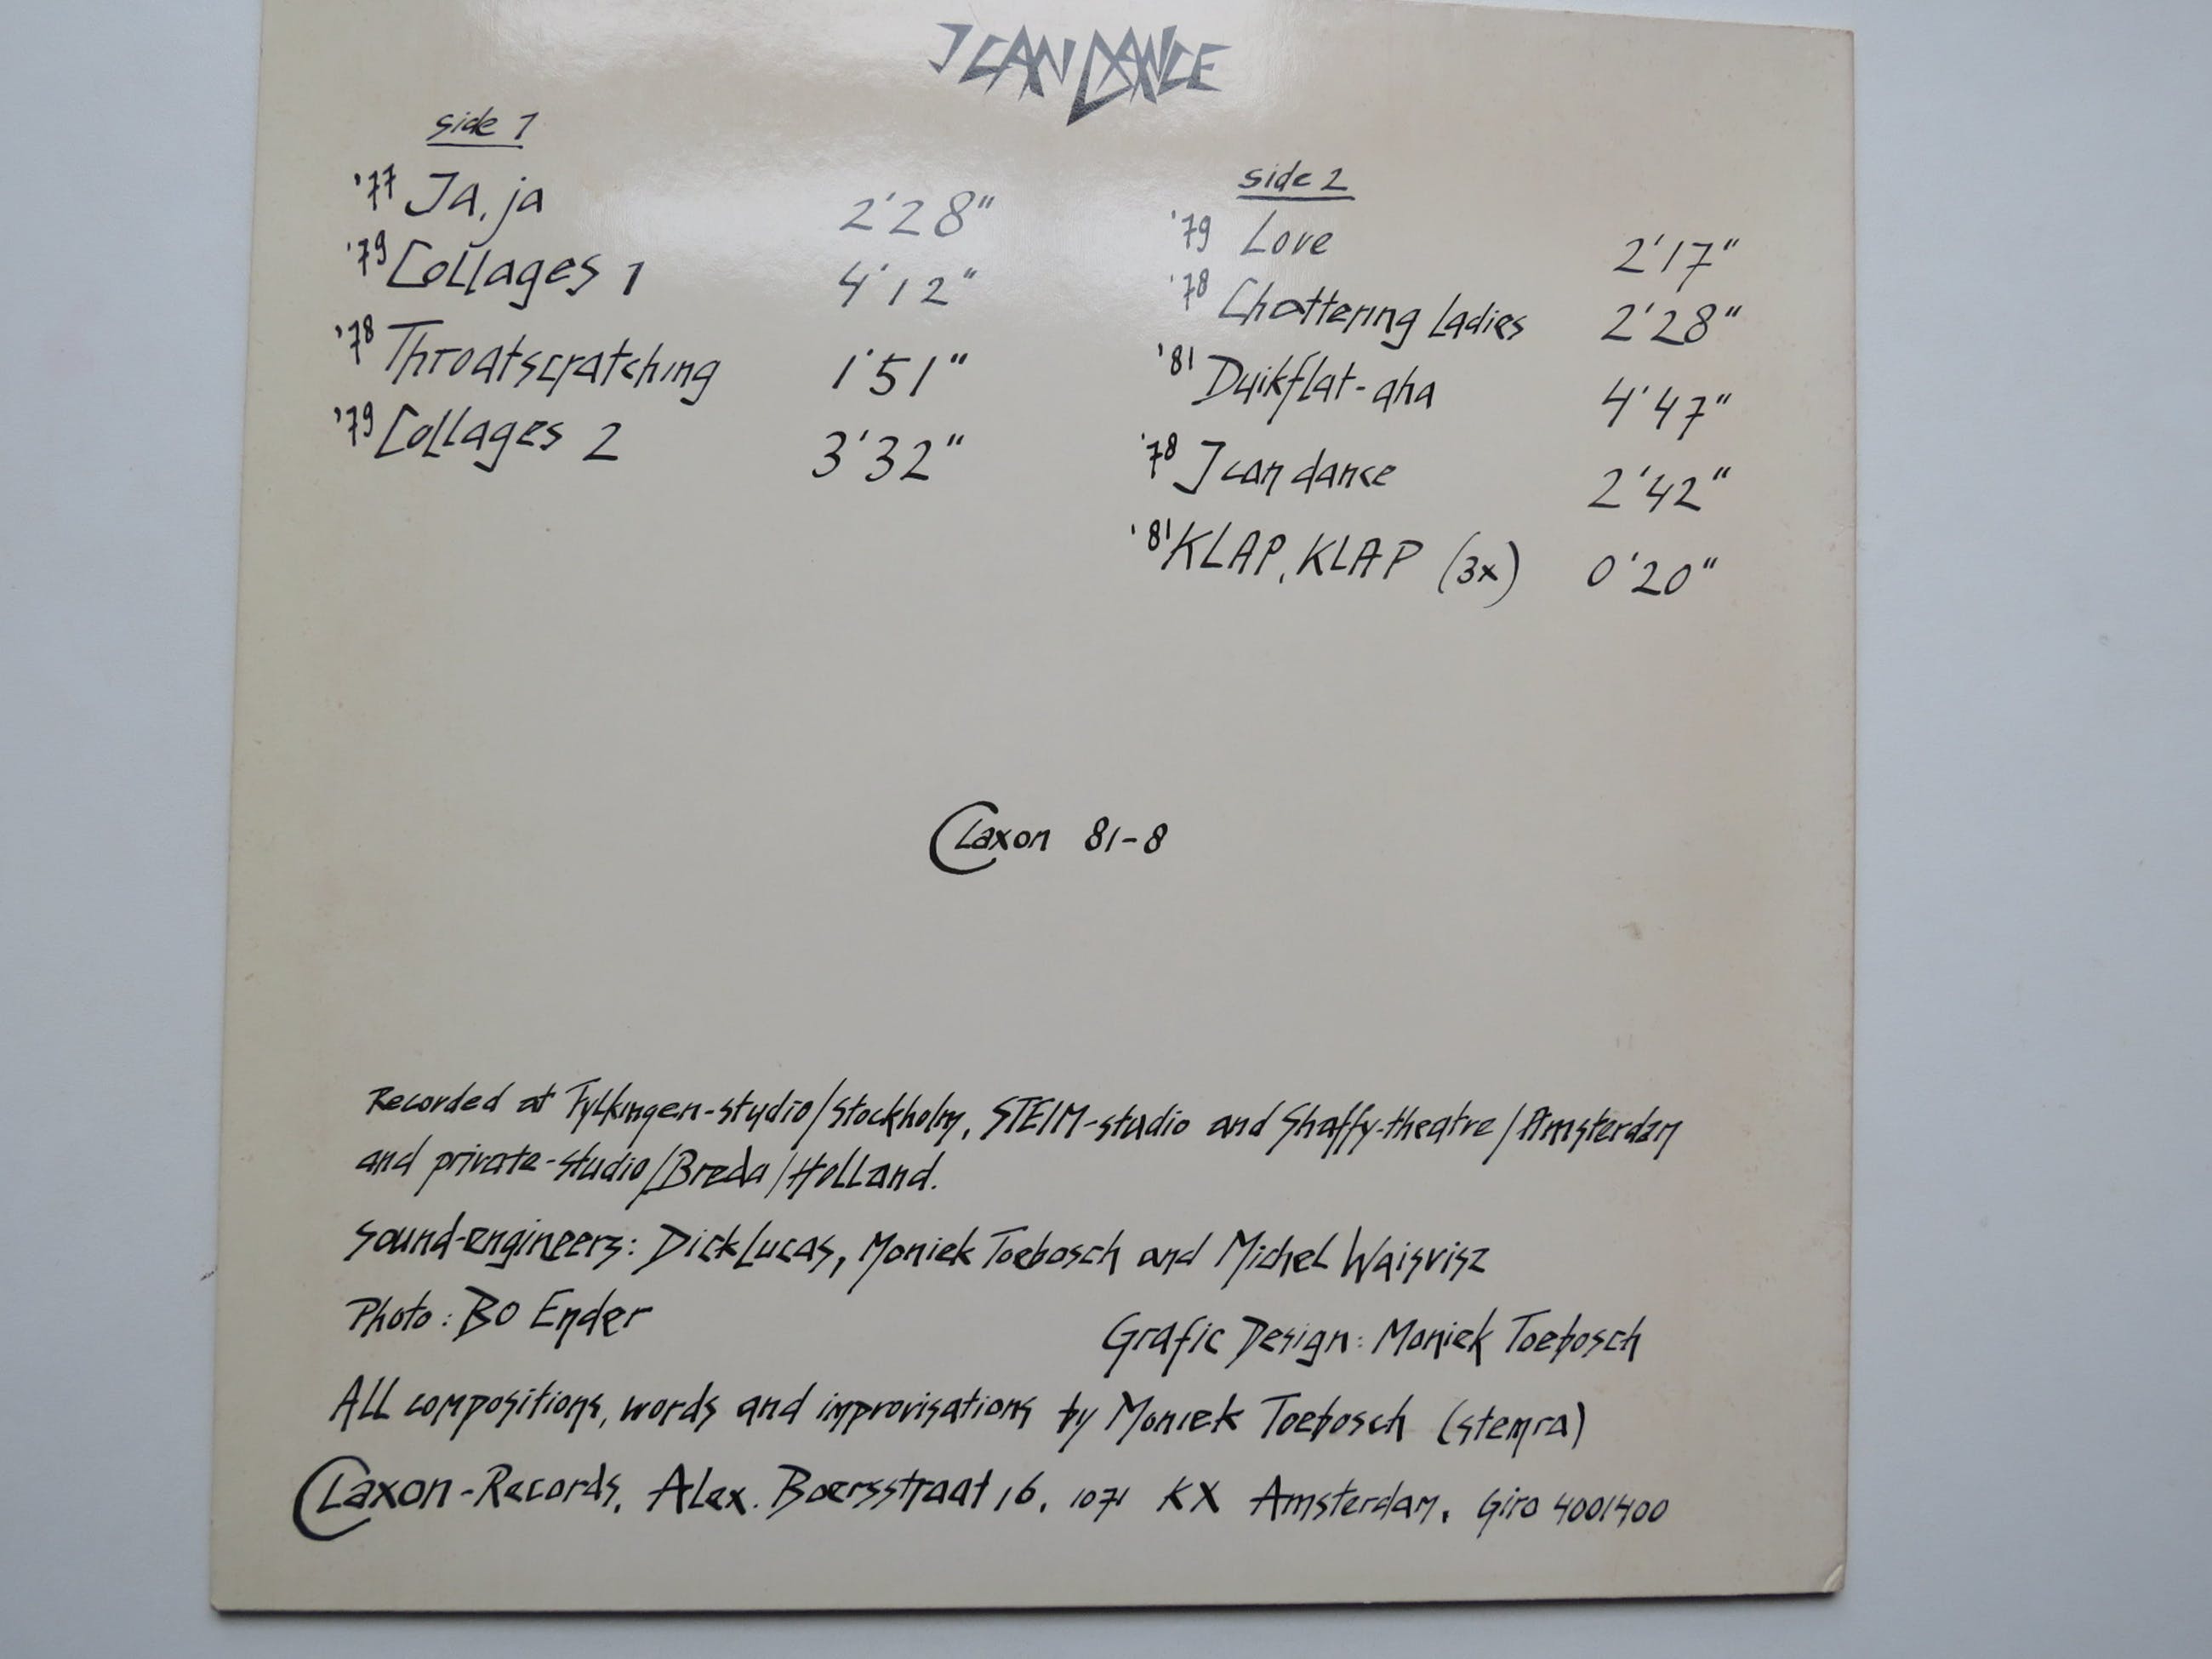 I CAN DANCE
side 1
'77 Ja, ja 2'28"
'79 Collages 1 4'12"
'78 Throatscratching 1'51"
'79 Collages 2 3'32"
side 2
'79 Love 2'17"
'78 Chattering Ladies 2'28"
'81 Duikflat-aha 4'47"
'78 I can dance 2'42"
'81 KLAP, KLAP (3x) 0'20"
Claxon 81-8
Recorded at Fylkingen-studio/Stockholm, STEIM-studio and Shaffy-theatre/Amsterdam
and private-studio/Breda/Holland.
Sound-engineers: Dick Lucas, Moniek Toebosch and Michel Waisvisz
Photo: Bo Ender
Grafic Design: Moniek Toebosch
All compositions, words and improvisations by Moniek Toebosch (stemra)
Claxon-Records, Alex. Boersstraat 16, 1071 KX Amsterdam, Giro 4001400